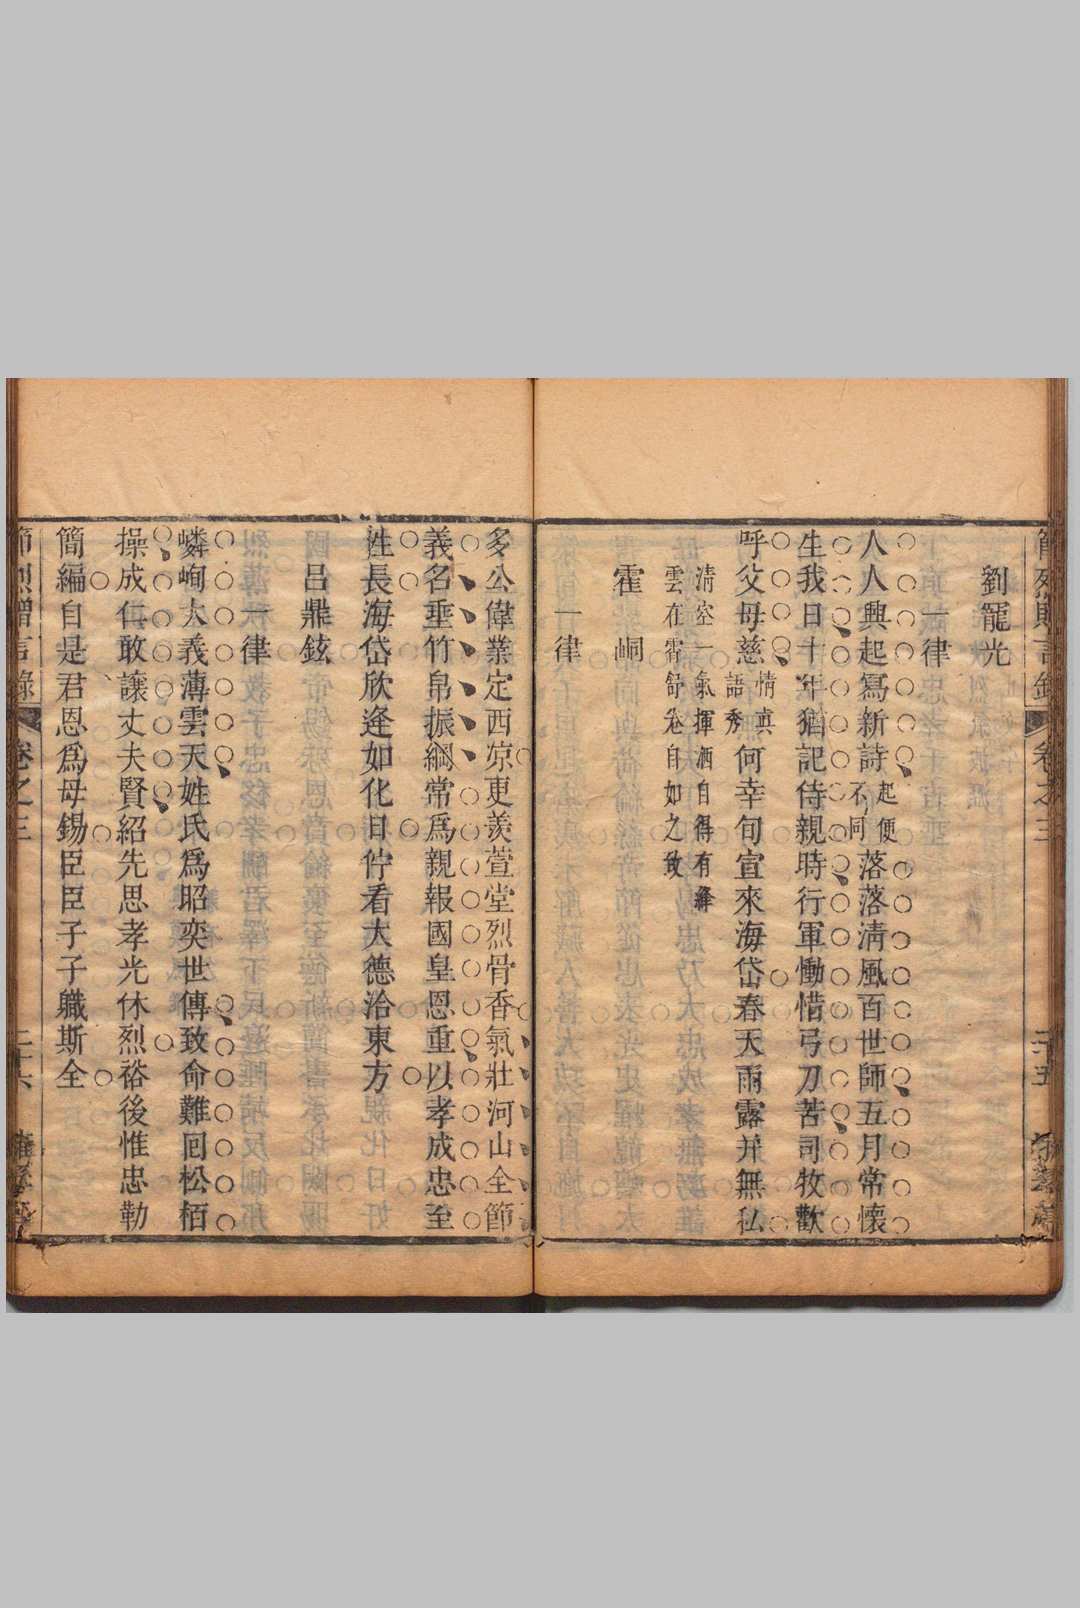 節烈贈言錄 卷之三 二十五
劉寵光
一律
人人興起寫新詩起便不同落落清風百世師五月常懷
生我日十年猶記侍親時行軍慟惜弓刀苦司牧歡
呼父母慈情真語秀何幸旬宣來海岱春天雨露并無私
清空一氣揮洒自得有絳
雲在霄舒卷自如之致
霍峒
一律
多公偉業定西凉更羨萱堂烈骨香氣壯河山全節
義名垂竹帛振綱常爲親報國皇恩重以孝成忠至
性長海岱欣逢如化日佇看大德洽東方
呂鼎鉉
一律
嶙峋大義薄雲天姓氏爲昭奕世傳致命難囘松栢
操成仁敢讓丈夫賢紹先思孝光休烈裕後惟忠勒
簡編自是君恩爲母錫臣臣子子職斯全
節烈贈言錄 卷之三 二十六